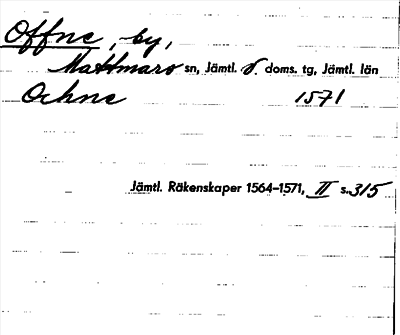 Offne, by,
Mattmars sn, Jämtl. v. doms. tg, Jämtl. län
Ochne 1571
Jämtl. Räkenskaper 1564-1571, II s. 315